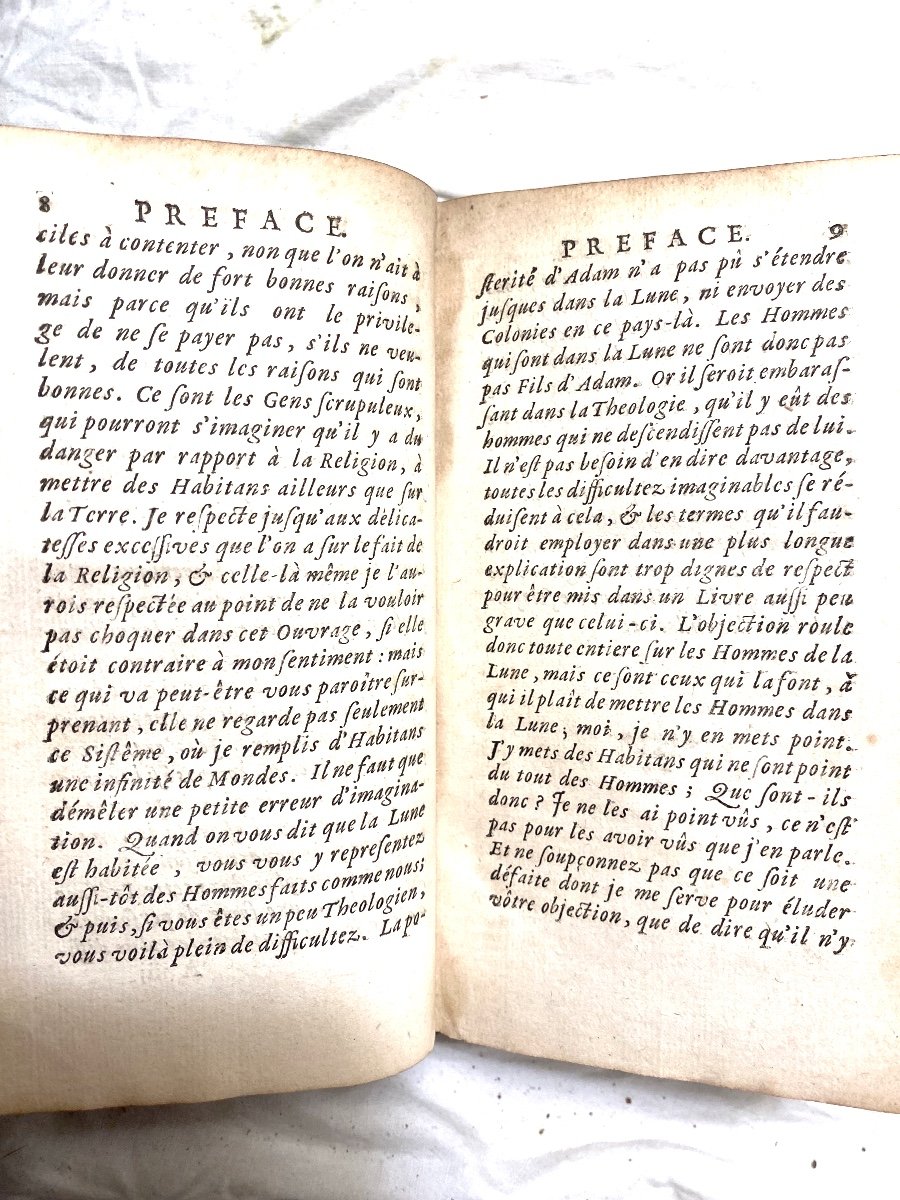 8
PREFACE.
ciles à contenter, non que l'on n'ait à
leur donner de fort bonnes raiſons,
mais parce qu'ils ont le privile-
ge de ne ſe payer pas, s'ils ne veu-
lent, de toutes les raiſons qui ſont
bonnes. Ce ſont les Gens ſcrupuleux,
qui pourront s'imaginer qu'il y a du
danger par rapport à la Religion, à
mettre des Habitans ailleurs que ſur
la Terre. Je reſpecte juſqu'aux délica-
teſſes exceſſives que l'on a ſur le fait de
la Religion, & celle-là même je l'au-
rois reſpectée au point de ne la vouloir
pas choquer dans cet Ouvrage, ſi elle
étoit contraire à mon ſentiment: mais
ce qui va peut-être vous paroître ſur-
prenant, elle ne regarde pas ſeulement
ce Siſtême, où je remplis d'Habitans
une infinité de Mondes. Il ne faut que
démêler une petite erreur d'imagina-
tion. Quand on vous dit que la Lune
eſt habitée, vous vous y repreſentez
auſſi-tôt des Hommes faits comme nous;
& puis, ſi vous êtes un peu Theologien,
vous voilà plein de difficultez. La po-
PREFACE.
9
ſterité d'Adam n'a pas pû s'étendre
juſques dans la Lune, ni envoyer des
Colonies en ce pays-là. Les Hommes
qui ſont dans la Lune ne ſont donc pas
pas Fils d'Adam. Or il ſeroit embaraſ-
ſant dans la Theologie, qu'il y eût des
hommes qui ne deſcendiſſent pas de lui.
Il n'eſt pas beſoin d'en dire davantage,
toutes les difficultez imaginables ſe ré-
duiſent à cela, & les termes qu'il fau-
droit employer dans une plus longue
explication ſont trop dignes de reſpect
pour être mis dans un Livre auſſi peu
grave que celui-ci. L'objection roule
donc toute entiere ſur les Hommes de la
Lune, mais ce ſont ceux qui la font, à
qui il plaît de mettre les Hommes dans
la Lune; moi, je n'y en mets point.
J'y mets des Habitans qui ne ſont point
du tout des Hommes; Que ſont-ils
donc? Je ne les ai point vûs, ce n'eſt
pas pour les avoir vûs que j'en parle.
Et ne ſoupçonnez pas que ce ſoit une
défaite dont je me ſerve pour éluder
vôtre objection, que de dire qu'il n'y